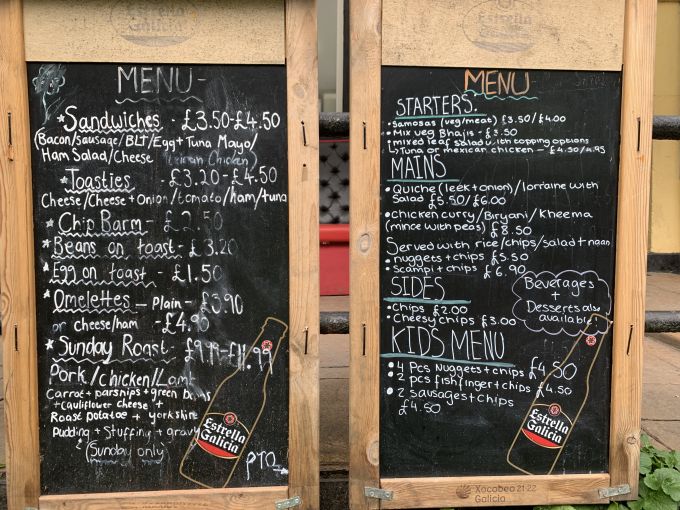 Estrella
Galicia
MENU-
*Sandwiches - £3.50-£4.50
(Bacon/Sausage/BLT/Egg+Tuna Mayo/
Ham Salad/Cheese Mexican Chicken)
*Toasties - £3.20-£4.50
Cheese/Cheese+Onion/tomato/ham/tuna
*Chip Barm - £2.50
*Beans on toast - £3.20
*Egg on toast - £1.50
*Omelettes - Plain - £3.90
or cheese/ham - £4.95
*Sunday Roast £9.99-£11.99
Pork/Chicken/Lamb
Carrot+parsnips+green beans
+Cauliflower cheese+
Roast potatoe + yorkshire
Pudding + Stuffing + gravy
(Sunday only)
Estrella
Galicia
PTO
Estrella
Galicia
MENU
STARTERS:
•Samosas (veg/meat) £3.50/£4.00
•Mix veg Bhajis - £3.50
•mixed leaf salad with topping options
↳Tuna or mexican chicken - £4.50/4.95
MAINS
•Quiche (leek+onion)/lorraine with
Salad £5.50/£6.00
•chicken curry/Biryani/Kheema
(mince with peas) £8.50
Served with rice/chips/salad+naan
•nuggets+chips £5.50
•Scampi+chips £6.90
SIDES
•Chips £2.00
•Cheesy chips £3.00
Beverages
+
Desserts also
available!
KIDS MENU
•4 Pcs Nuggets+chips £4.50
•2 pcs fishfinger+chips £4.50
•2 Sausages+chips
£4.50
Estrella
Galicia
Xacobeo 21·22
Galicia